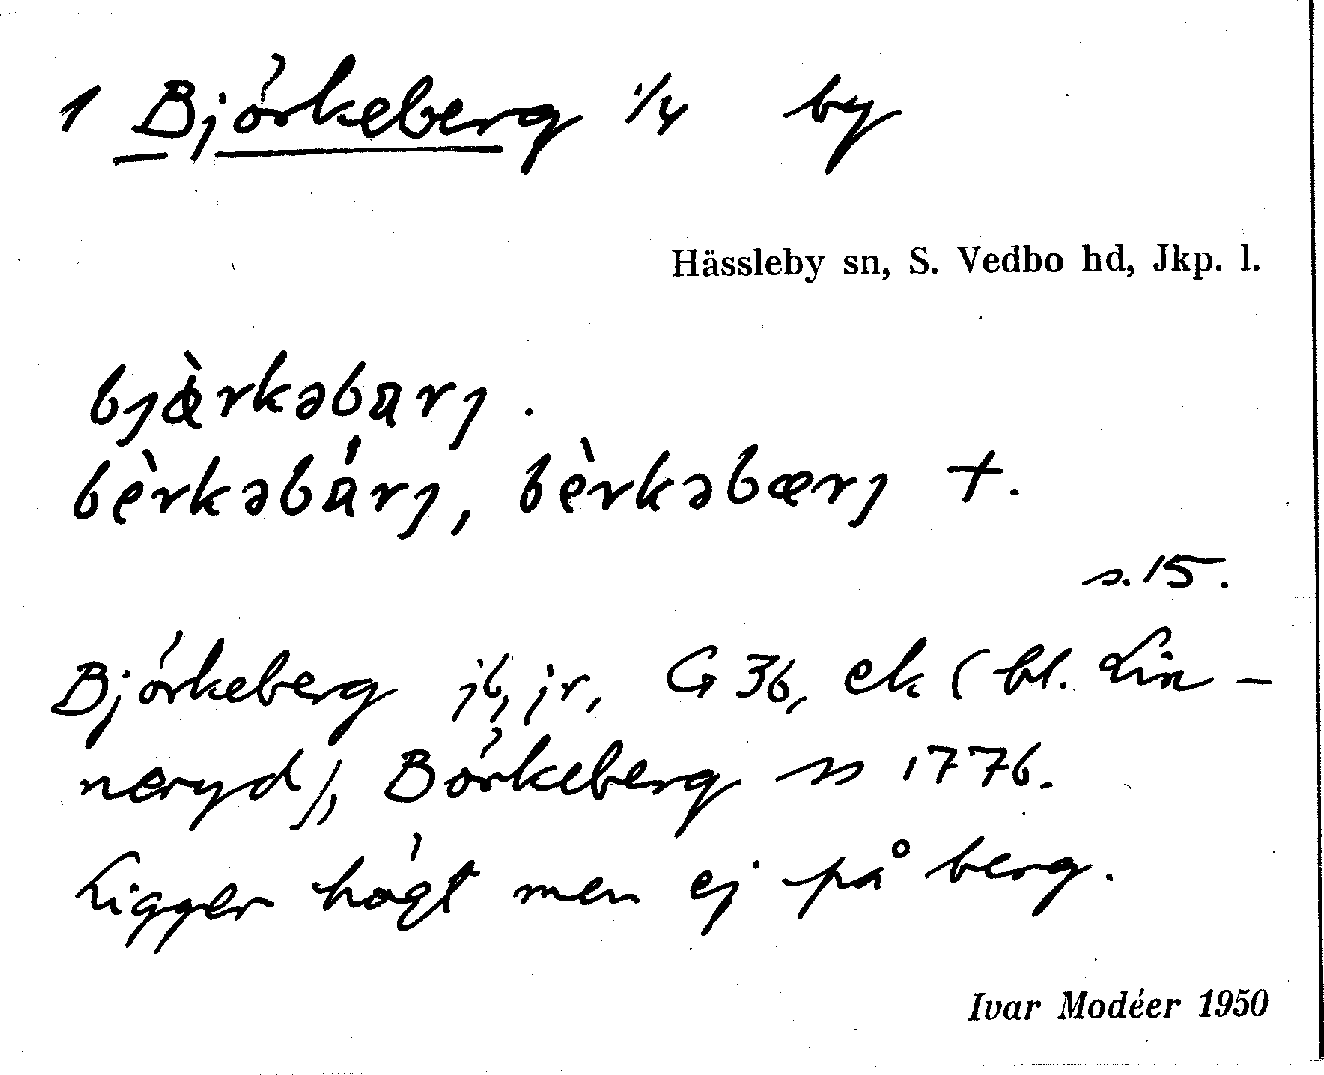 1 Björkeberg 1/4 by
Hässleby sn, S. Vedbo hd, Jkp. l.
bjø̀rkəbarj.
bèrkəbárj, bèrkəbærj +.
s. 15.
Björkeberg jb, jr, G 36, ek (bl. Lin-
neryd), Börkeberg 1776.
Ligger högt men ej på berg.
Ivar Modéer 1950